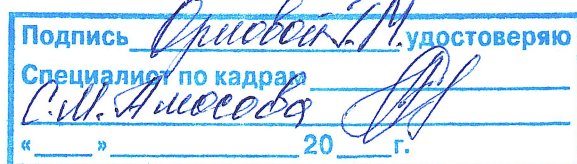 Подпись Орловой Т.М. удостоверяю
Специалист по кадрам
С.М. Амосова
« » 20 г.